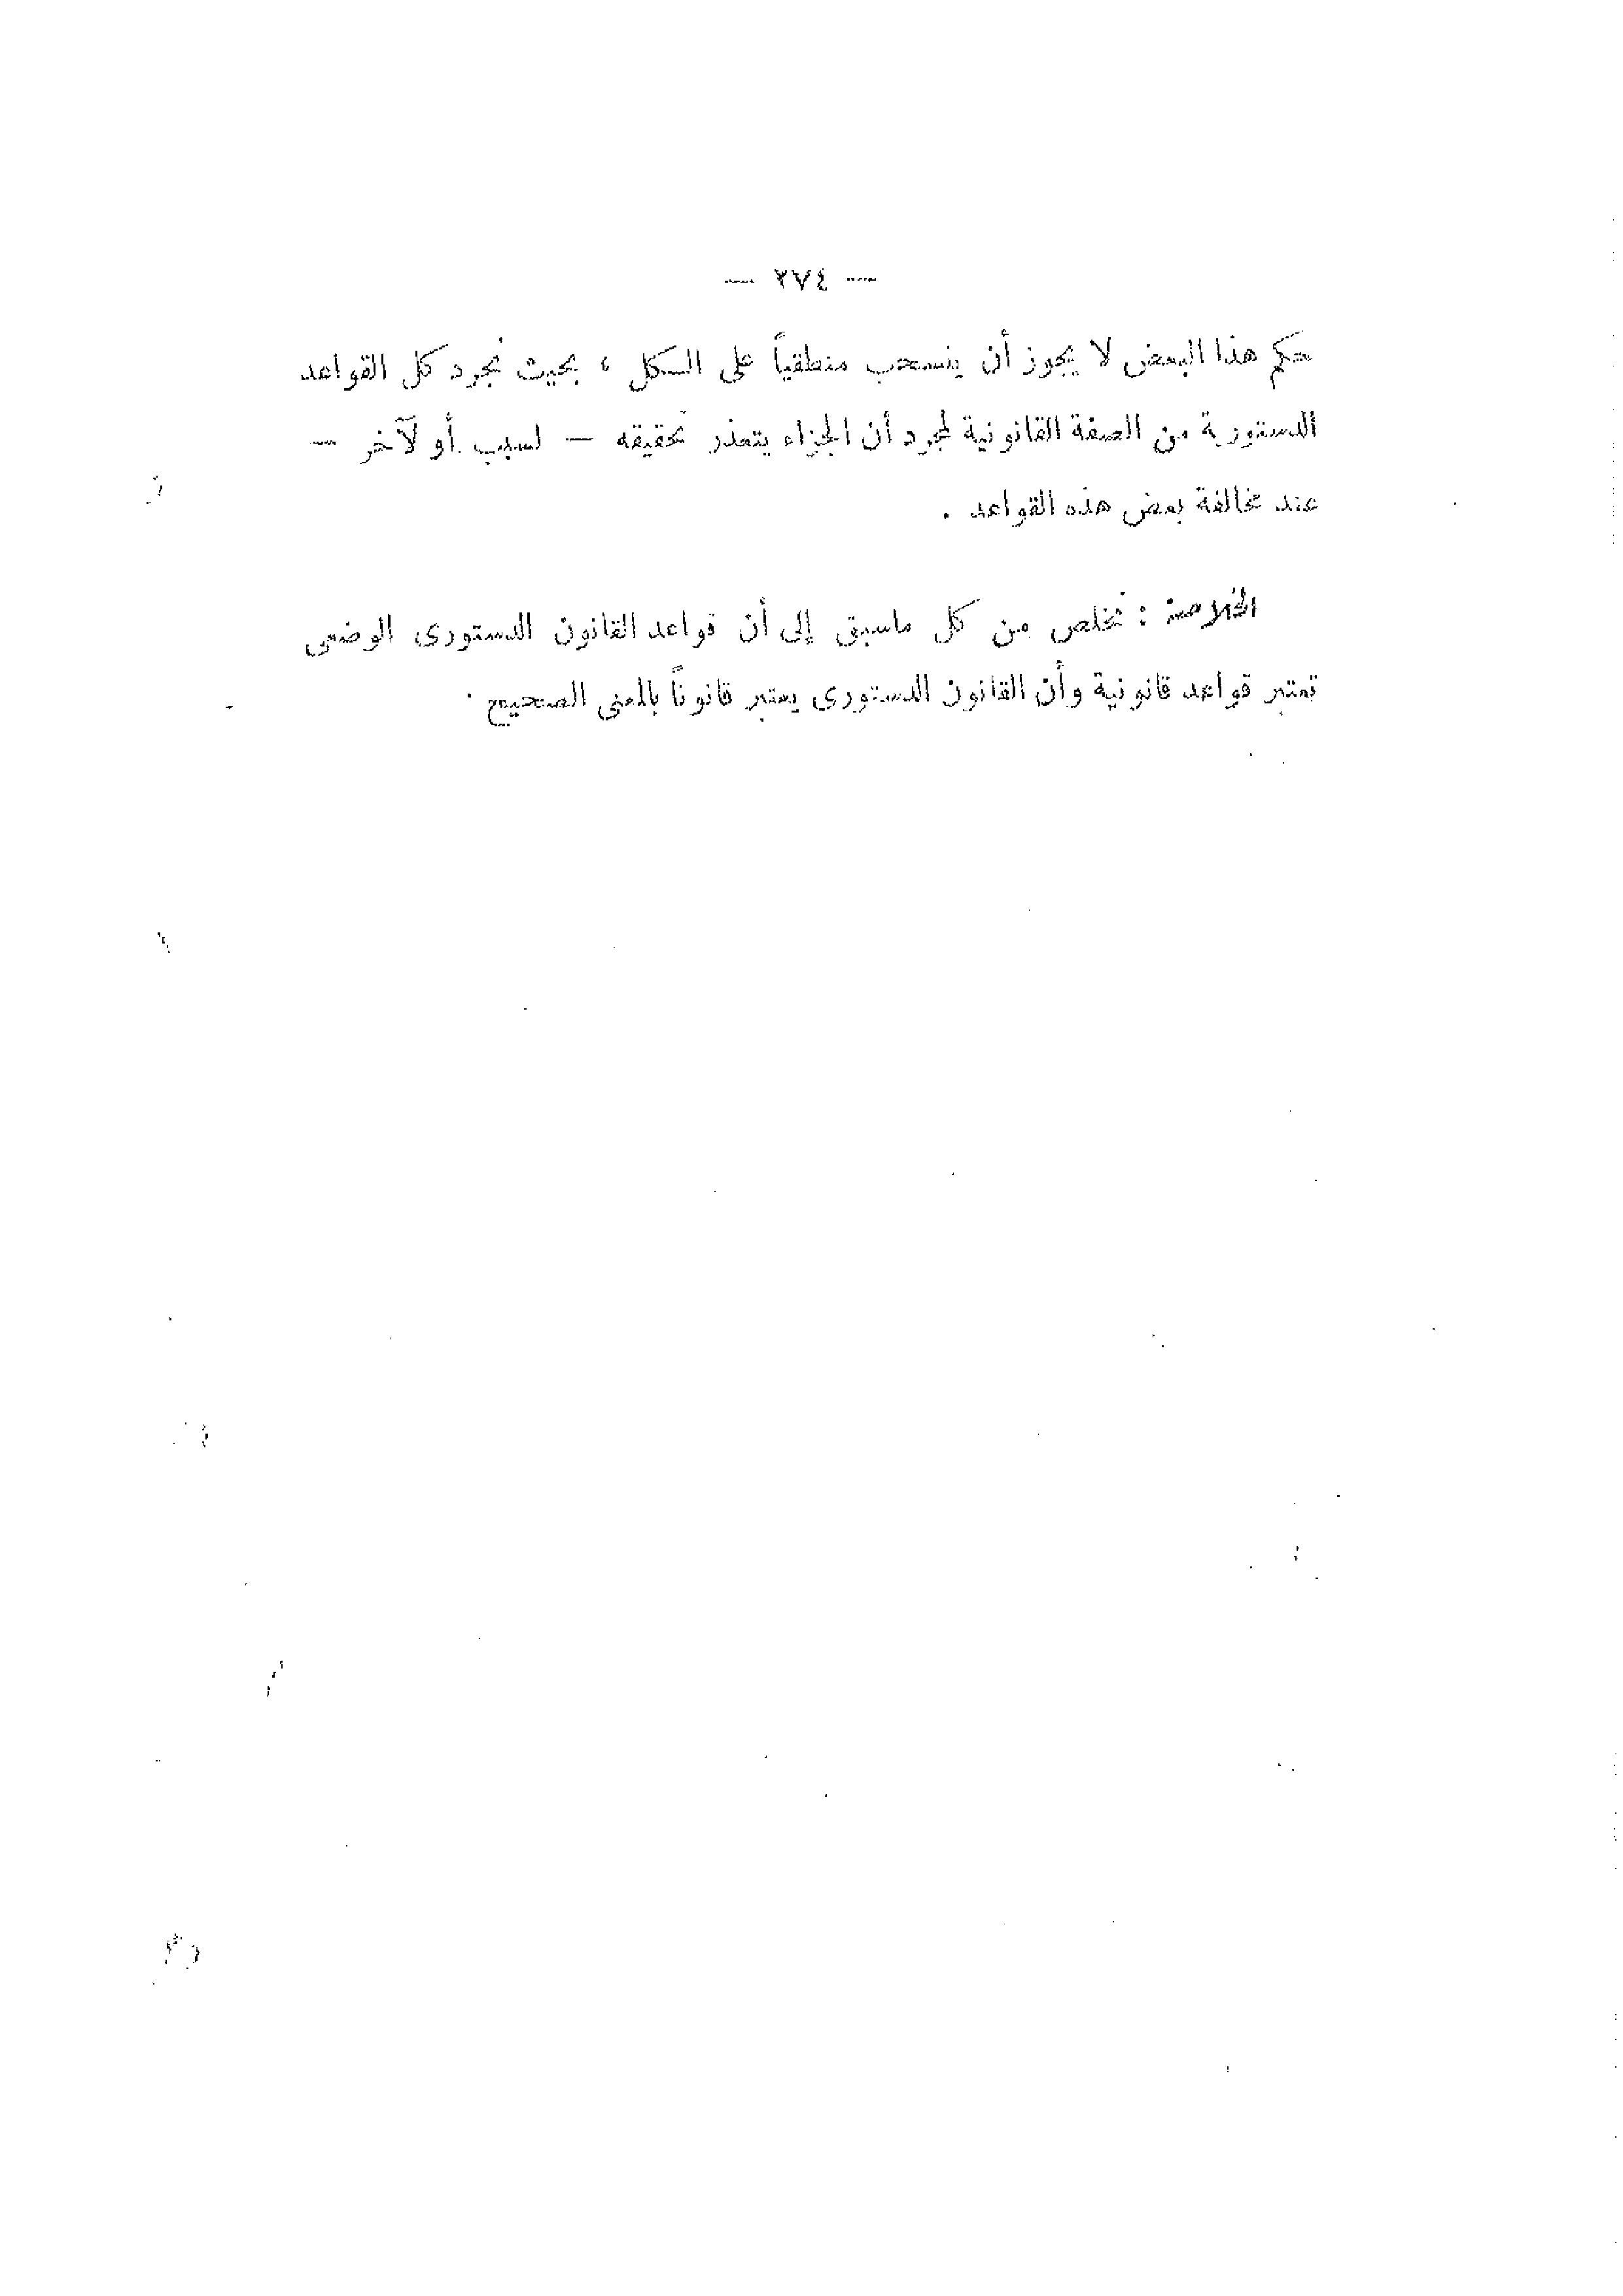 — ٢٧٤ —
حكم هذا البعض لا يجوز أن ينسحب منطقياً على الكل ، بحيث نجرد كل القواعد
الدستورية من الصفة القانونية لمجرد أن الجزاء يتعذر تحقيقه — لسبب أو لآخر —
عند مخالفة بعض هذه القواعد .
الخلاصة : نخلص من كل ماسبق إلى أن قواعد القانون الدستورى الوضعى
تعتبر قواعد قانونية وأن القانون الدستورى يعتبر قانوناً بالمعنى الصحيح .